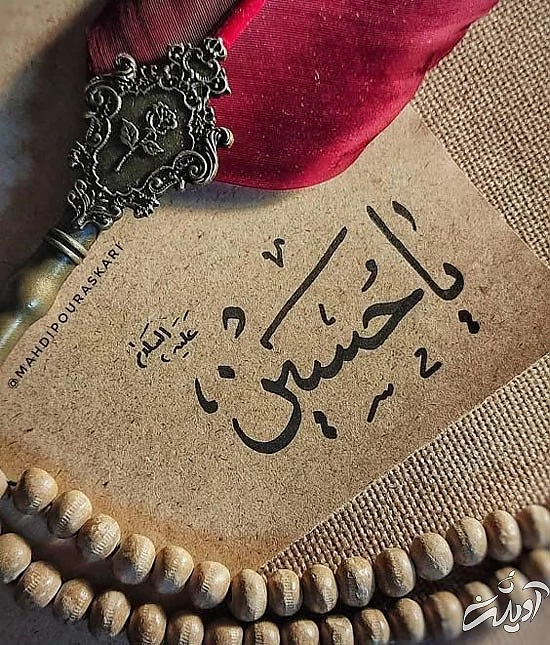 یا حسین
علیه السلام
@MAHDIPOURASKARI
آوینی